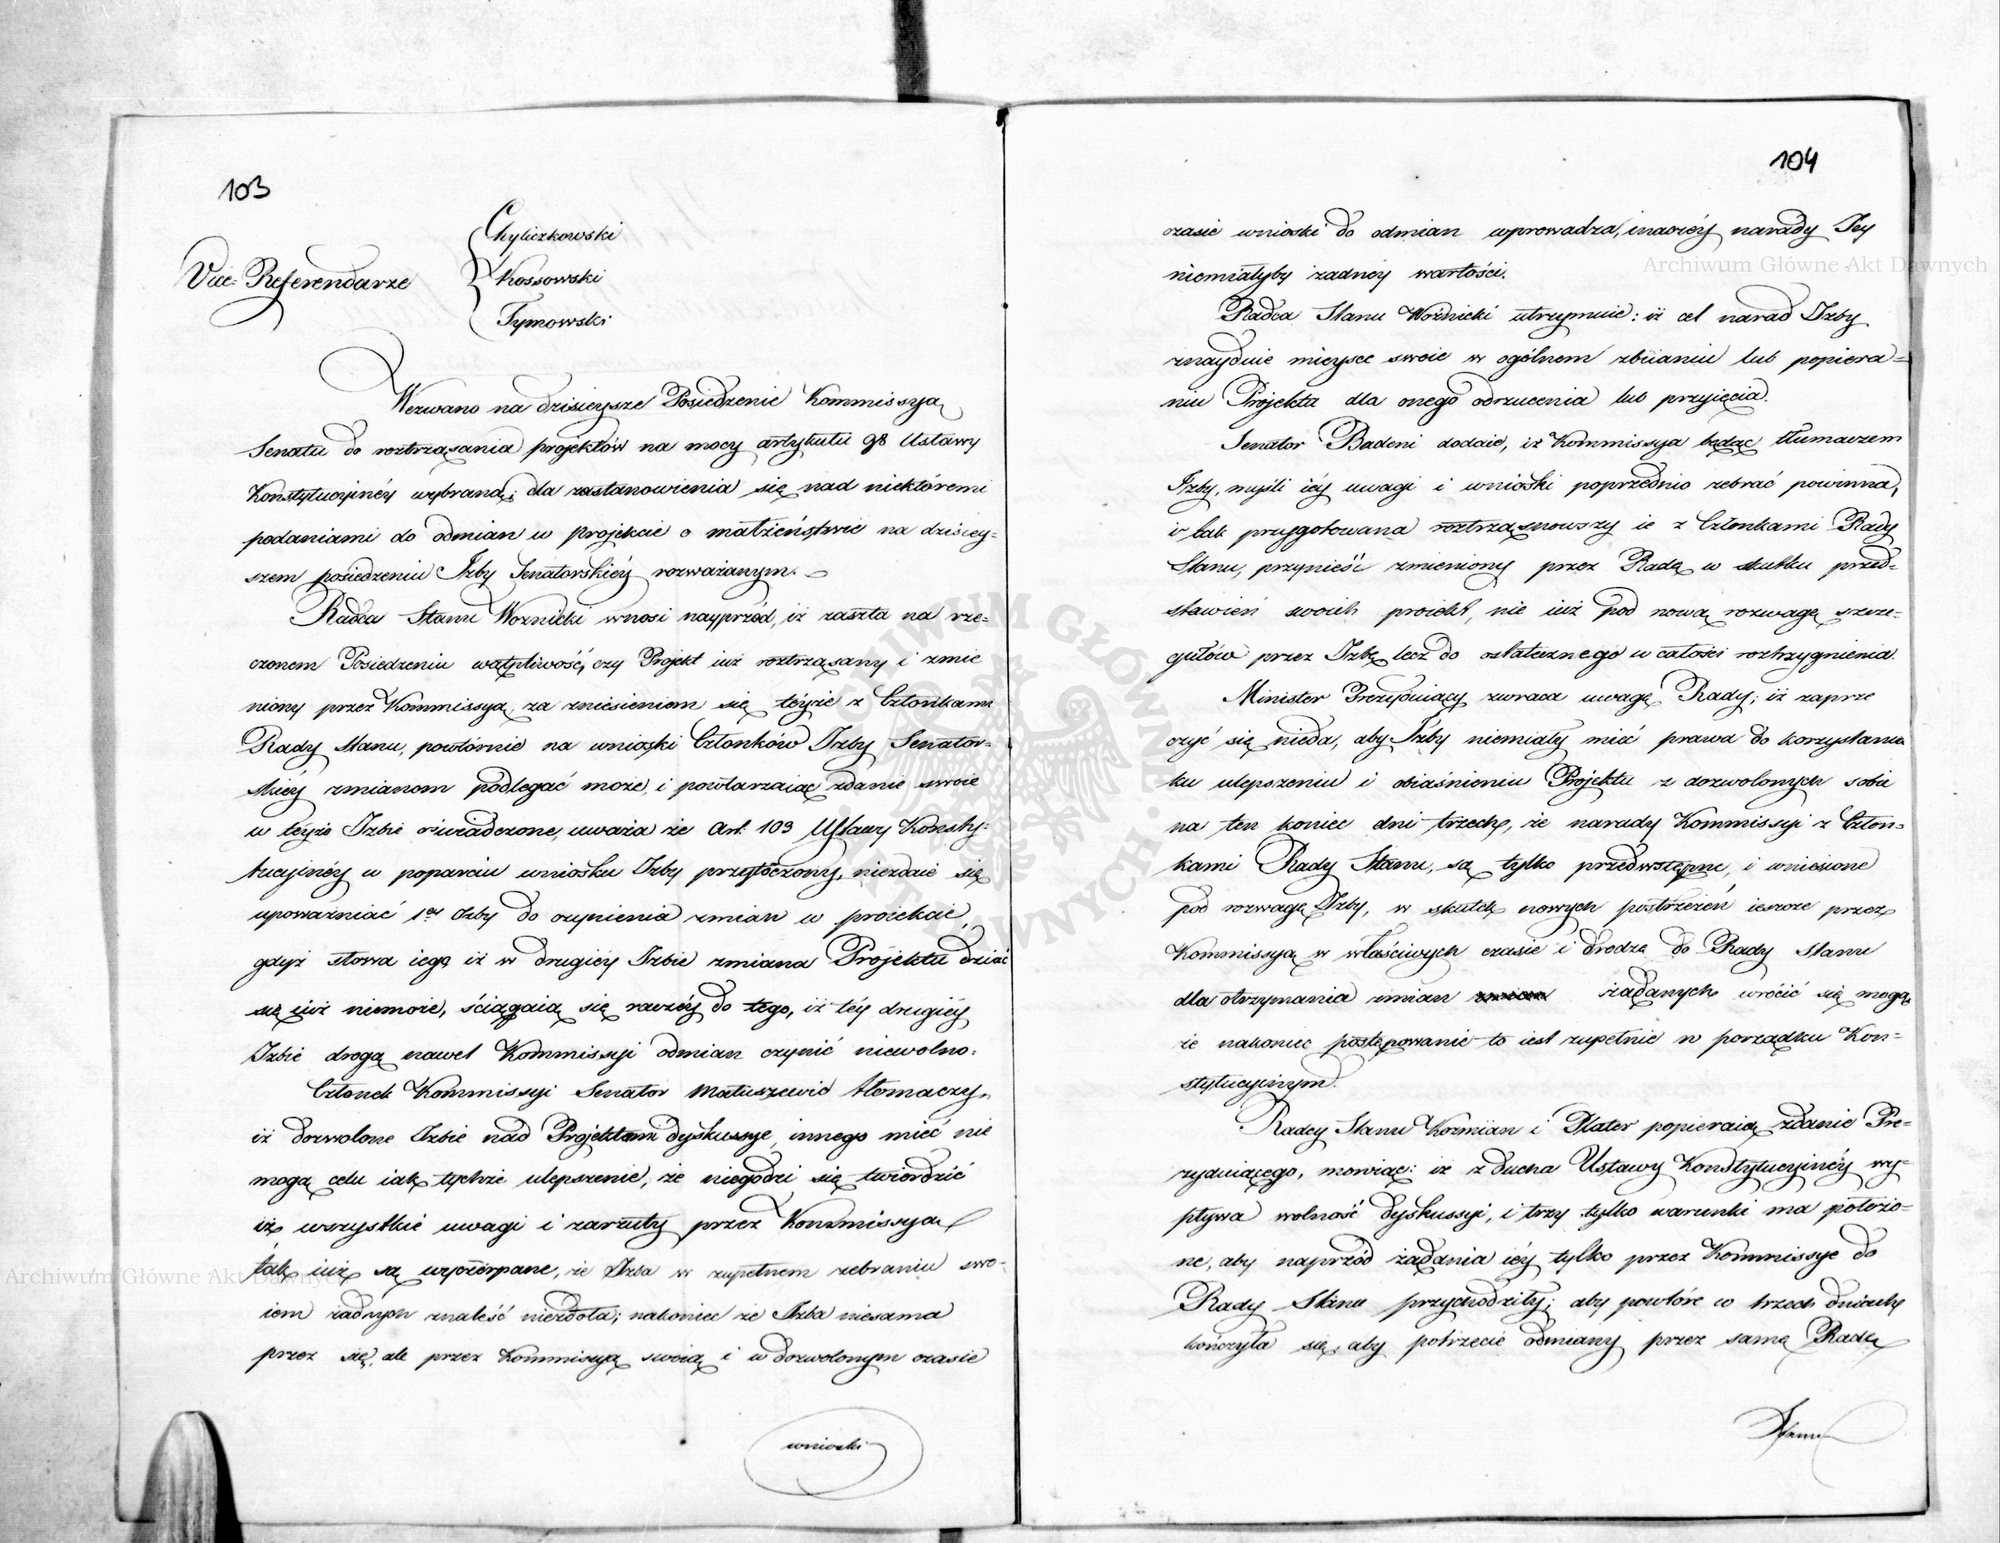 103
Vice-Referendarze
Chyliczkowski
Kossowski
Tymowski
Wezwano na dzisieysze Posiedzenie Kommissyą
Senatu do roztrząsania projektów na mocy artykułu 98 Ustawy
Konstytucyinéy wybraną, dla zastanowienia się nad niektóremi
podaniami do odmian w Projekcie o małżeństwie na dzisiey-
szem posiedzeniu Izby Senatorskiéy rozważanym.
Radca Stanu Woznicki wnosi nayprzód, iż zaszła na rze-
czonem Posiedzeniu wątpliwość, czy Projekt iuż roztrząsany i zmie
niony przez Kommissyą za zniesieniem się teyże z Członkami
Rady Stanu, powtórnie na wnioski Członków Izby Senator-
skiéy zmianom podlegać może, i powtarzaiąc zdanie swoie
w teyże Izbie oświadczone, uważa że Art. 103 Ustawy Konsty-
tucyinéy w poparciu wniosku Izby przytoczony, niezdaie się
upoważniać 1ey Izby do czynienia zmian w proiekcie,
gdyż słowa iego iż w drugiéy Izbie zmiana Projektu dziać
się iuż niemoże, ściągaią się raczéy do tego, iż téy drugiéy
Izbie drogą nawet Kommissyi odmian czynić niewolno.
Członek Kommissyi Senator Matuszewic tłomaczy,
iż dozwolone Izbie nad Projektem dyskussye, innego mieć nie
mogą celu iak tychże ulepszenie, że niegodzi się twierdzić
iż wszystkie uwagi i zarzuty przez Kommissyą
tak iuż są wyczerpane, że Izba w zupełnem zebraniu swo-
iem żadnych znaleść niezdoła; nakoniec że Izba niesama
przez się, ale przez Kommissyą swoią i w dozwolonym czasie
wnioski
104
czasie wnioski do odmian wprowadza, inaczéy narady Jey
niemiałyby żadney wartości.
Radca Stanu Woźnicki utrzymuie: iż cel narad Izby
znayduie mieysce swoie w ogólnem zbiianiu lub popiera-
niu Projekta dla onego odrzucenia lub przyięcia.
Senator Badeni dodaie, iż Kommissya będąc tłumaczem
Izby, myśli iéy uwagi i wnioski poprzednio zebrać powinna,
i tak przygotowana roztrząsnowszy ie z Członkami Rady
Stanu, przynieść zmieniony przez Radę w skutku przed-
stawień swoich proiekt, nie iuż pod nową rozwagę szcze-
gułów przez Izbę lecz do ostatecznego w całości roztrzygnienia.
Minister Prezyduiący zwraca uwagę Rady; iż zaprze
czyć się nieda, aby Izby niemiały mieć prawa do korzystania
ku ulepszeniu i obiaśnieniu Projektu z dozwolonych sobie
na ten koniec dni trzech, że narady Kommissyi z Człon-
kami Rady Stanu, są tylko przedwstępne, i wniesione
pod rozwagę Izby, w skutek nowych postrzeżeń ieszcze przez
Kommissyą w właściwych czasie i drodze do Rady Stanu
dla otrzymania zmian żądanych wrócić się mogą,
że nakoniec postępowanie to iest zupełnie w porządku Kon-
stytucyinym.
Radcy Stanu Kozmian i Plater popieraią zdanie Pre-
zyduiącego, mówiąc: iż z ducha Ustawy Konstytucyinéy wy-
pływa wolność dyskussyi, i trzy tylko warunki ma położo-
ne, aby naprzód żądania iéy tylko przez Kommissye do
Rady Stanu przychodziły; aby powtóre w trzech dniach
kończyła się, aby potrzecie odmiany przez samą Radę
Stanu